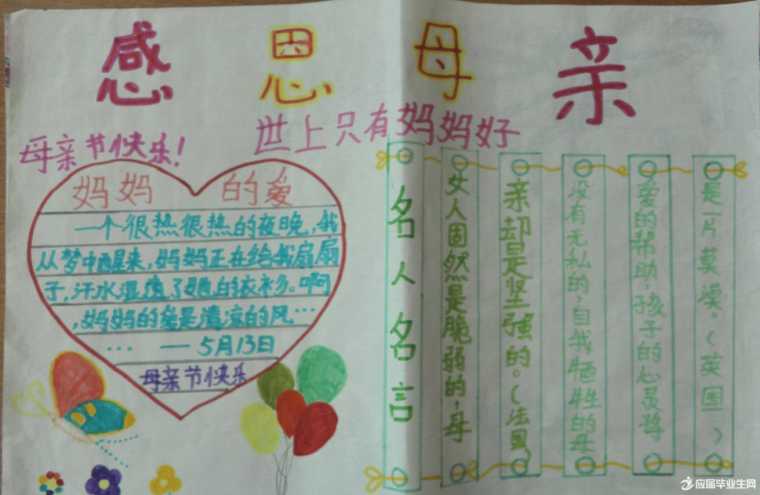 感恩母亲
母亲节快乐!
世上只有妈妈好
妈妈 的爱
一个很热很热的夜晚,我
从梦中醒来,妈妈正在给我扇扇
子,汗水湿透了她的衣衫。啊
,妈妈的爱是清凉的风…
… — 5月13日
母亲节快乐
名人名言
女人固然是脆弱的,母
亲却是坚强的。(法国)
没有无私的,自我牺牲的母
爱的帮助,孩子的心灵将
是一片荒漠。(英国)
应届毕业生网